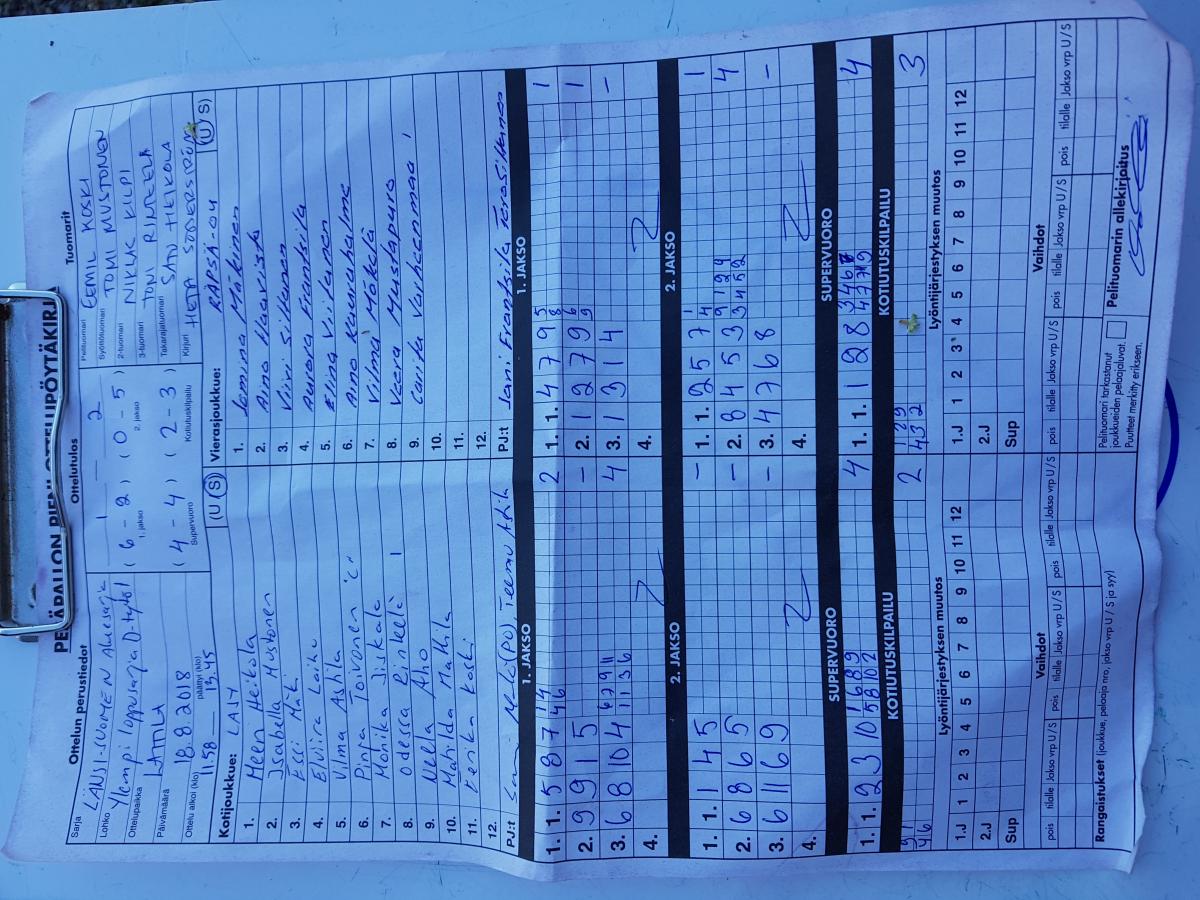 PESÄPALLON PIENI OTTELUPÖYTÄKIRJA
Ottelun perustiedot
Sarja LÄNSI-SUOMEN Aluesarja
Lohko Ylempi loppusarja D-tytöt
Ottelupaikka LAITILA
Päivämäärä 18.8.2018
Ottelu alkoi (klo) 11.58 päättyi (klo) 13.45
Ottelutulos
1 — 2
( 6 – 2 ) ( 0 – 5 )
1. jakso 2. jakso
( 4 – 4 ) ( 2 – 3 )
Supervuoro Kotiutuskilpailu
Tuomarit
Pelituomari EEMIL KOSKI
Syöttötuomari TOMI MUSTONEN
2-tuomari NIKLAS KILPI
3-tuomari TONI RINTEELÄ
Takarajatuomari SAMI HEIKOLA
Kirjuri HETA SÖDERSTRÖM
Kotijoukkue: LAJY (U S)
1. Meeri Heikola
2. Isabella Mustonen
3. Essi Mäki
4. Elviira Laiho
5. Vilma Ashila
6. Pinja Toivonen
7. Monika Jiskala
8. Odessa Rinteelä
9. Neella Aho
10. Mathilda Mattila
11. Eerika Koski
12.
PJ:t (PO), Teemu Ashila
Vierasjoukkue: RÄPSÄ-04 (U S)
1. Jemina Mäkinen
2. Aino Haavisto
3. Viivi Siltanen
4. Aurora Frantsila
5. Elina Viitanen
6. Aino Kaurahalme
7. Vilma Mäkelä
8. Veera Mustapuro
9. Carita Vaiheenmaa
10.
11.
12.
PJ:t Jani Frantsila
1. JAKSO
1. 1. 5 8 7 1 4 4 6 2
2. 9 9 1 5 –
3. 6 8 10 4 6 7 9 11 1 1 3 6 4
4.
1. JAKSO
1. 1. 4 7 9 5 8 1
2. 1 2 7 9 6 9 1
3. 1 3 1 4 –
4.
2. JAKSO
1. 1. 1 4 5 –
2. 6 8 6 5 –
3. 6 11 6 9 –
4.
2. JAKSO
1. 1. 2 5 7 1 4 1
2. 8 4 5 3 9 1 2 4 3 4 5 2 4
3. 4 7 6 8 –
4.
SUPERVUORO
1. 1. 2 3 10 1 6 8 9 5 8 10 2 4
SUPERVUORO
1. 1. 2 8 3 4 6 7 9 4
KOTIUTUSKILPAILU
9 1 4 6 2
KOTIUTUSKILPAILU
1 2 9 4 3 2 3
Lyöntijärjestyksen muutos
1.J 1 2 3 4 5 6 7 8 9 10 11 12
2.J
Sup
Lyöntijärjestyksen muutos
1.J 1 2 3 4 5 6 7 8 9 10 11 12
2.J
Sup
Vaihdot
pois tilalle Jakso vrp U/S pois tilalle Jakso vrp U/S pois tilalle Jakso vrp U/S
Vaihdot
pois tilalle Jakso vrp U/S pois tilalle Jakso vrp U/S pois tilalle Jakso vrp U/S
Rangaistukset (joukkue, pelaaja nro, jakso vrp U / S ja syy)
Pelituomari tarkastanut
joukkueiden pelaajaluvat.
Puutteet merkitty erikseen.
Pelituomarin allekirjoitus